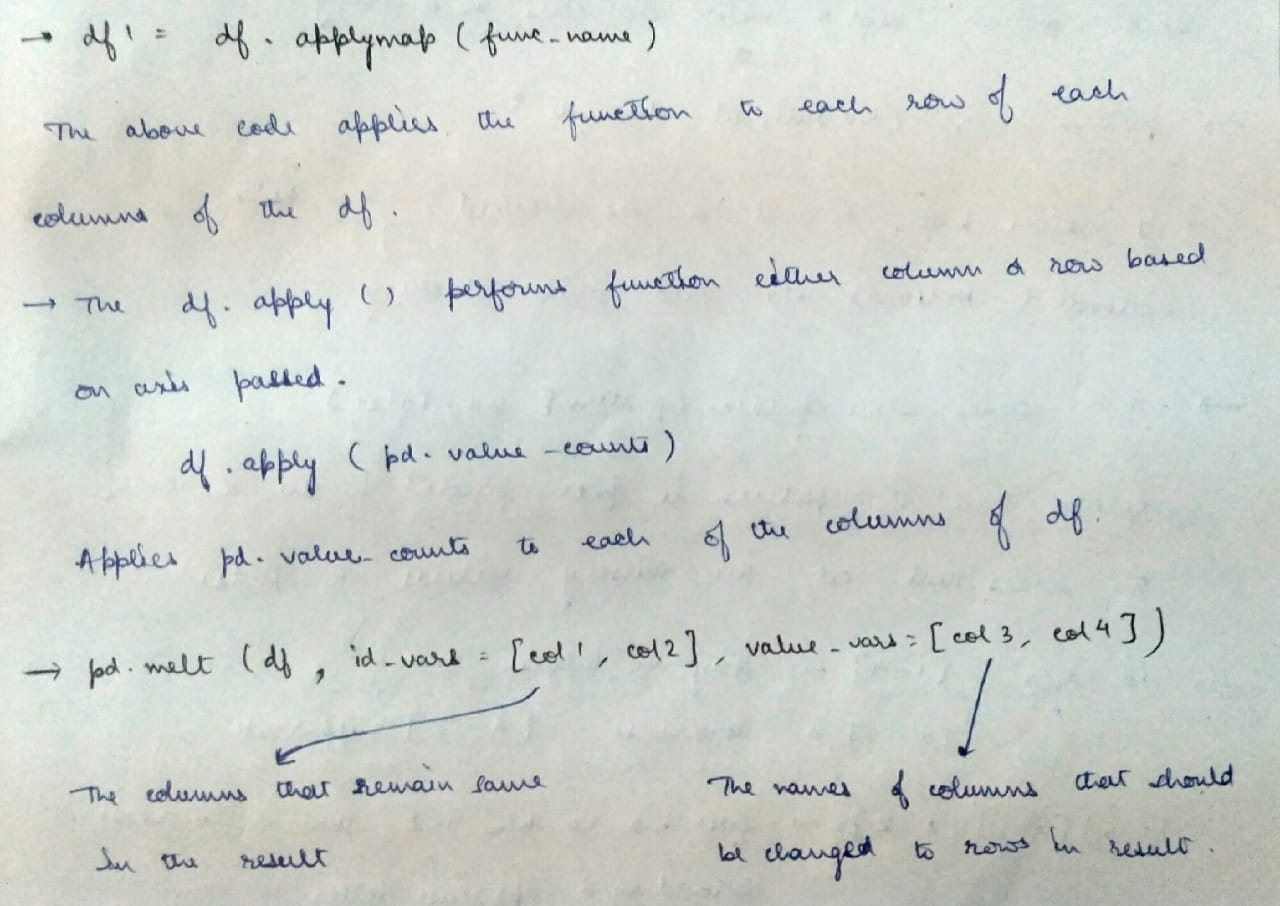 → df1 = df. applymap ( func_name )
The above code applies the function to each row of each
columns of the df.
→ The df. apply () performs function either column or row based
on axis passed.
df. apply ( pd. value_counts )
Applies pd. value_counts to each of the columns of df.
→ pd. melt ( df , id_vars = [col1, col2], value_vars = [col3, col4] )
The columns that remain same The names of columns that should
in the result be changed to rows in result.